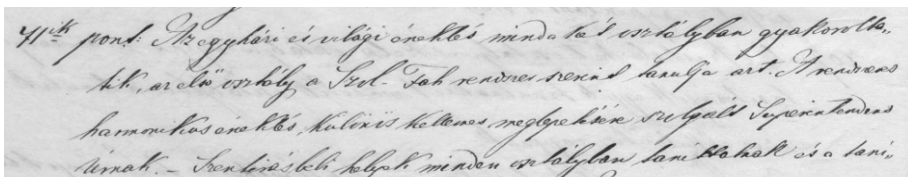 71ik pont: Az egyházi és világi éneklés mind a két osztályban gyakorolta-
tik, az első osztály a Szol-Fah rendszer szerint tanulja azt. A rendszeres
harmonikus éneklés, különös kellemes meglepetésére szolgált Superintendens
Úrnak. – Szentirásbeli helyek minden osztályban tanittatnak és a tani-